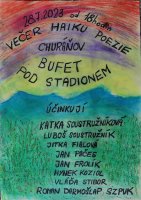 28.7.2023 od 18hodin
VEČER HAIKU POEZIE
CHURÁŇOV
BUFET
POD STADIONEM
ÚČINKUJÍ
KATKA SOUSTRUŽNÍKOVÁ
LUBOŠ SOUSTRUŽNÍK
JITKA FIALOVÁ
JAN PÁČES
JAN FROLÍK
HYNEK KOZIOL
VLÁĎA STIBOR
ROMAN DARMOŠLAP SZPUK